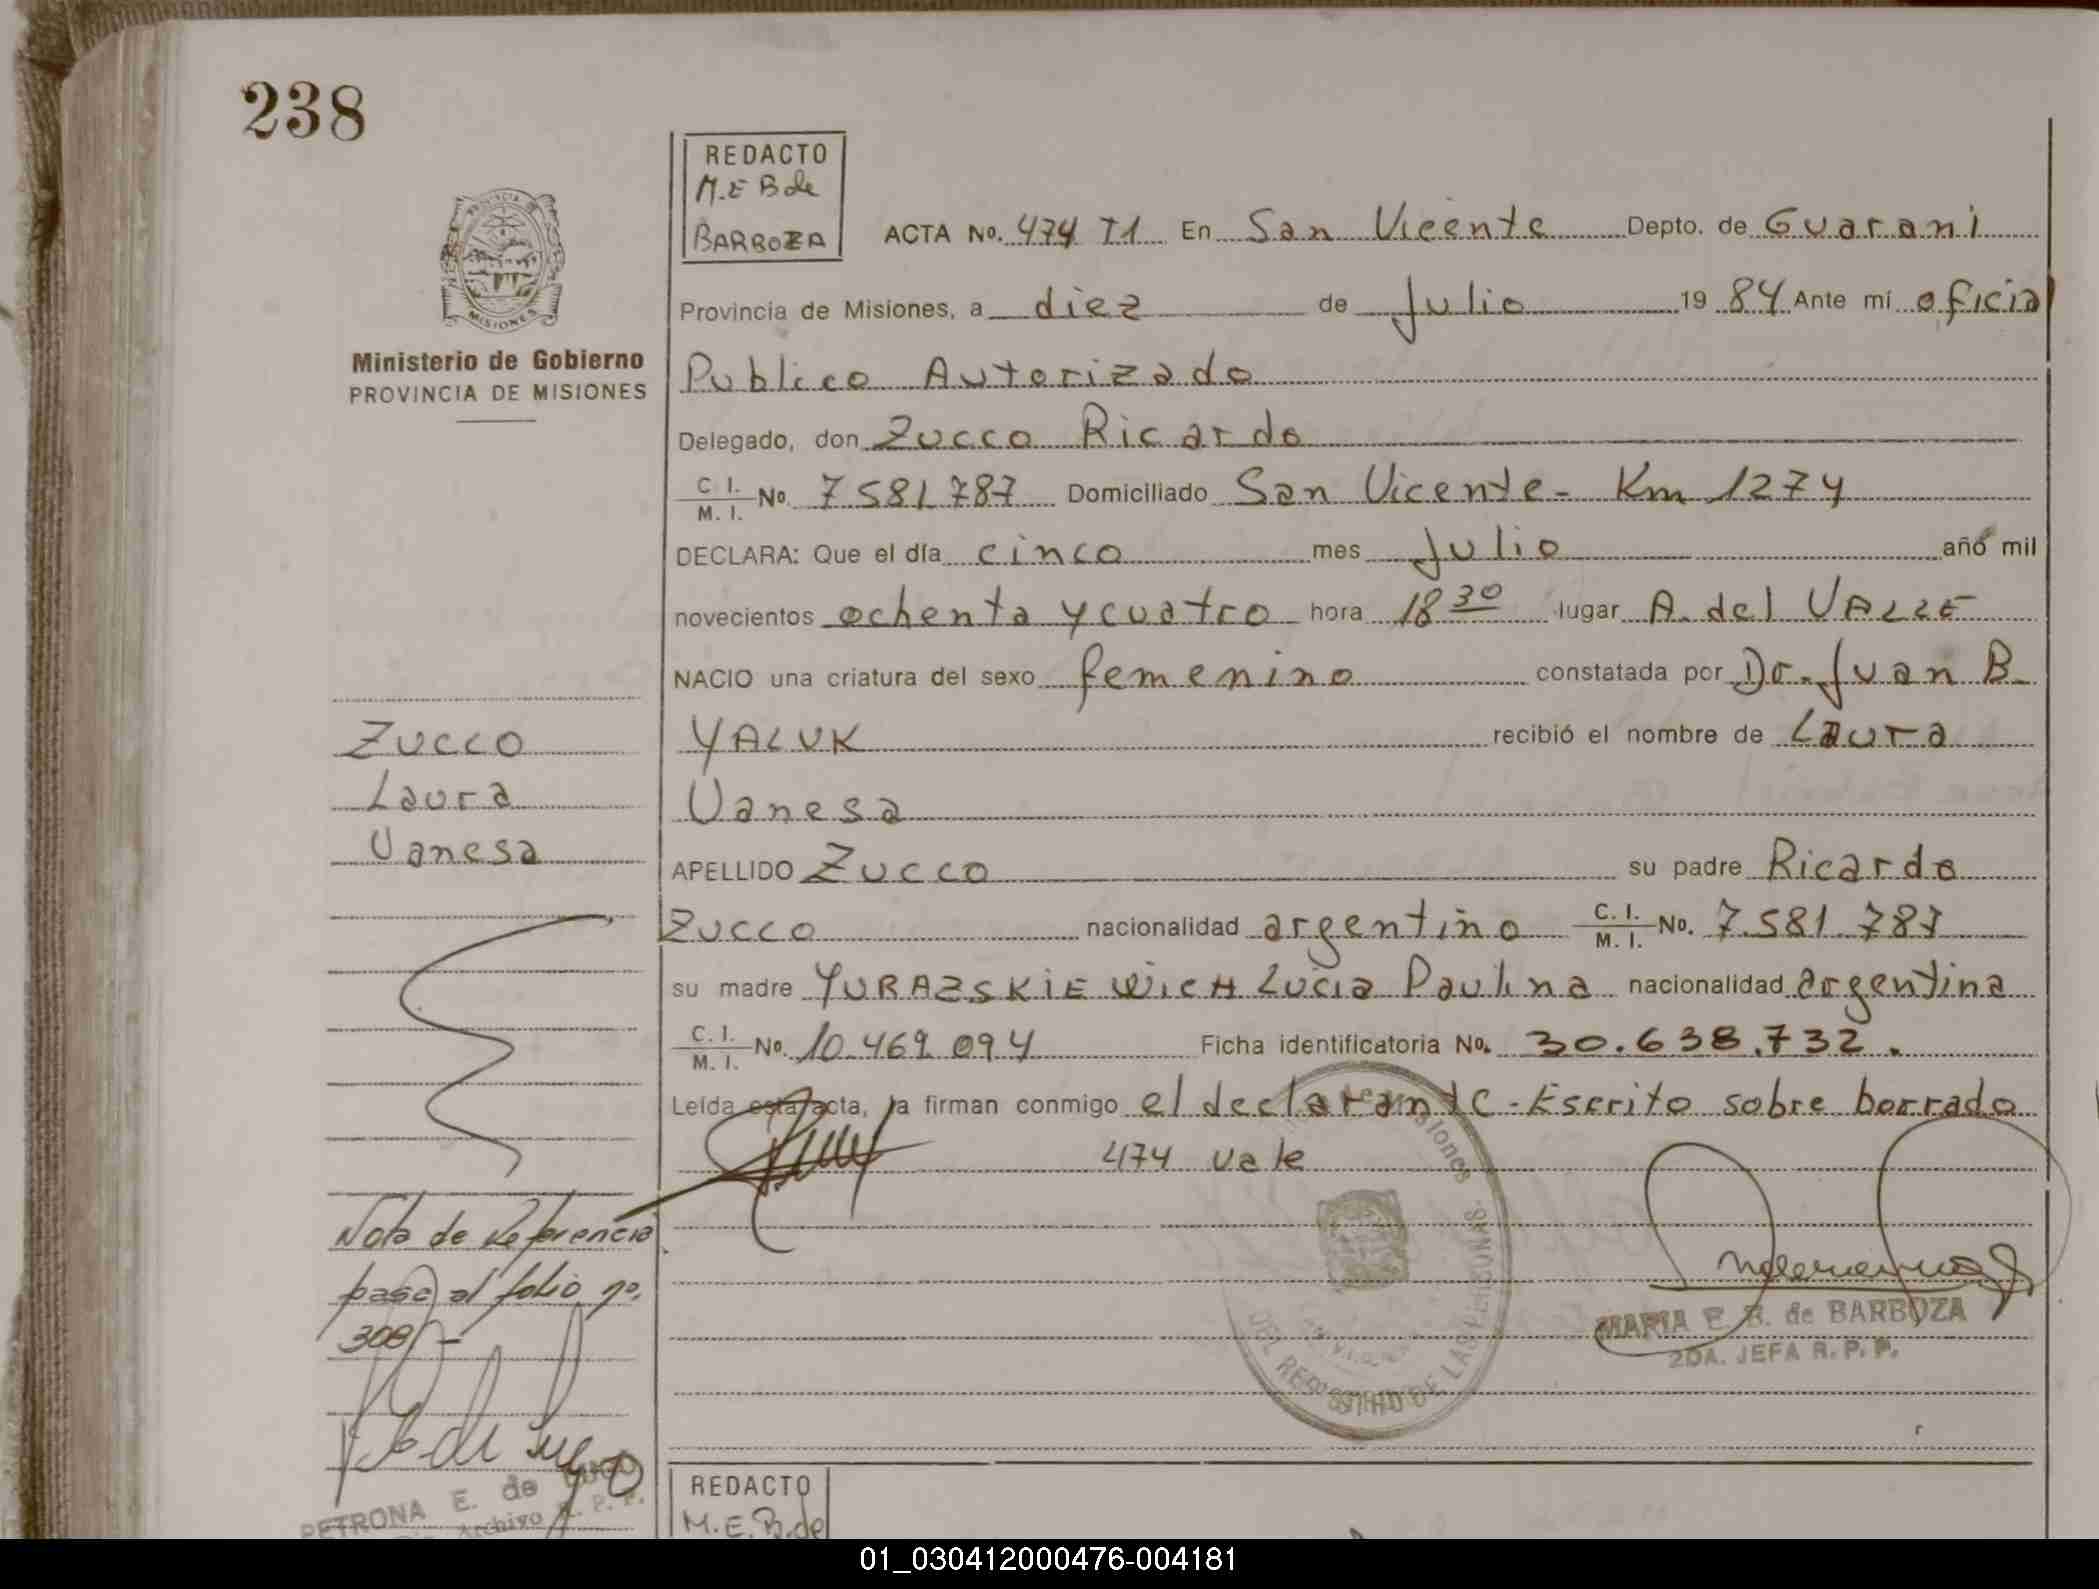 238
REDACTO
M.E B de
BARBOZA
ACTA No. 474 T1 En San Vicente Depto. de Guarani
Provincia de Misiones, a diez de Julio 19 84 Ante mí oficial
Publico Autorizado
MISIONES
Ministerio de Gobierno
PROVINCIA DE MISIONES
Delegado, don Zucco Ricardo
C. I. / M. I. No. 7581787 Domiciliado San Vicente - Km 1274
DECLARA: Que el día cinco mes Julio año mil
novecientos ochenta y cuatro hora 18 30 lugar A. del VALLE
NACIO una criatura del sexo femenino constatada por Dr. Juan B.
YALUK recibió el nombre de Laura
Vanesa
Zucco
Laura
Vanesa
APELLIDO Zucco su padre Ricardo
Zucco nacionalidad argentino C. I. / M. I. No. 7.581.787
su madre YURAZSKIEWICH Lucia Paulina nacionalidad argentina
C. I. / M. I. No. 10.469.094 Ficha identificatoria No. 30.638.732.
Leída esta acta, la firman conmigo el declarante - Escrito sobre borrado
474 vale
Nota de Referencia
pase al folio nº.
308 -
MARIA E. B. de BARBOZA
2DA. JEFA R. P. P.
PETRONA E. de LUGO
Archivo R. P. P.
REDACTO
M.E.B.de
01_030412000476-004181